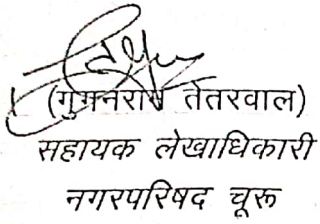 (गुगनराम तेतरवाल)
सहायक लेखाधिकारी
नगरपरिषद चूरू